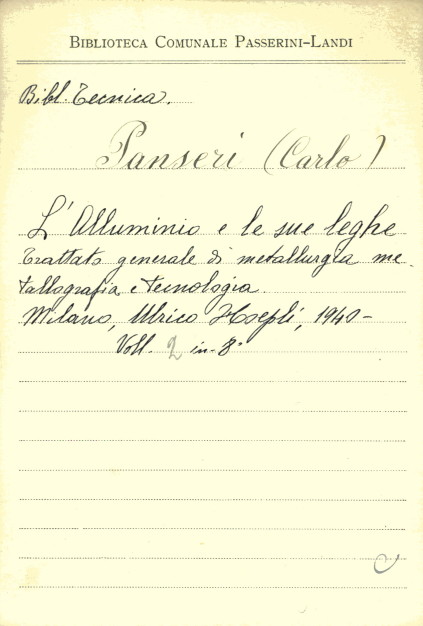 BIBLIOTECA COMUNALE PASSERINI-LANDI
Bibl. Tecnica.
Panseri (Carlo)
L'Alluminio e le sue leghe
Trattato generale di metallurgia me-
tallografia e tecnologia.
Milano, Ulrico Hoepli, 1940-
Voll. 2 in-8°